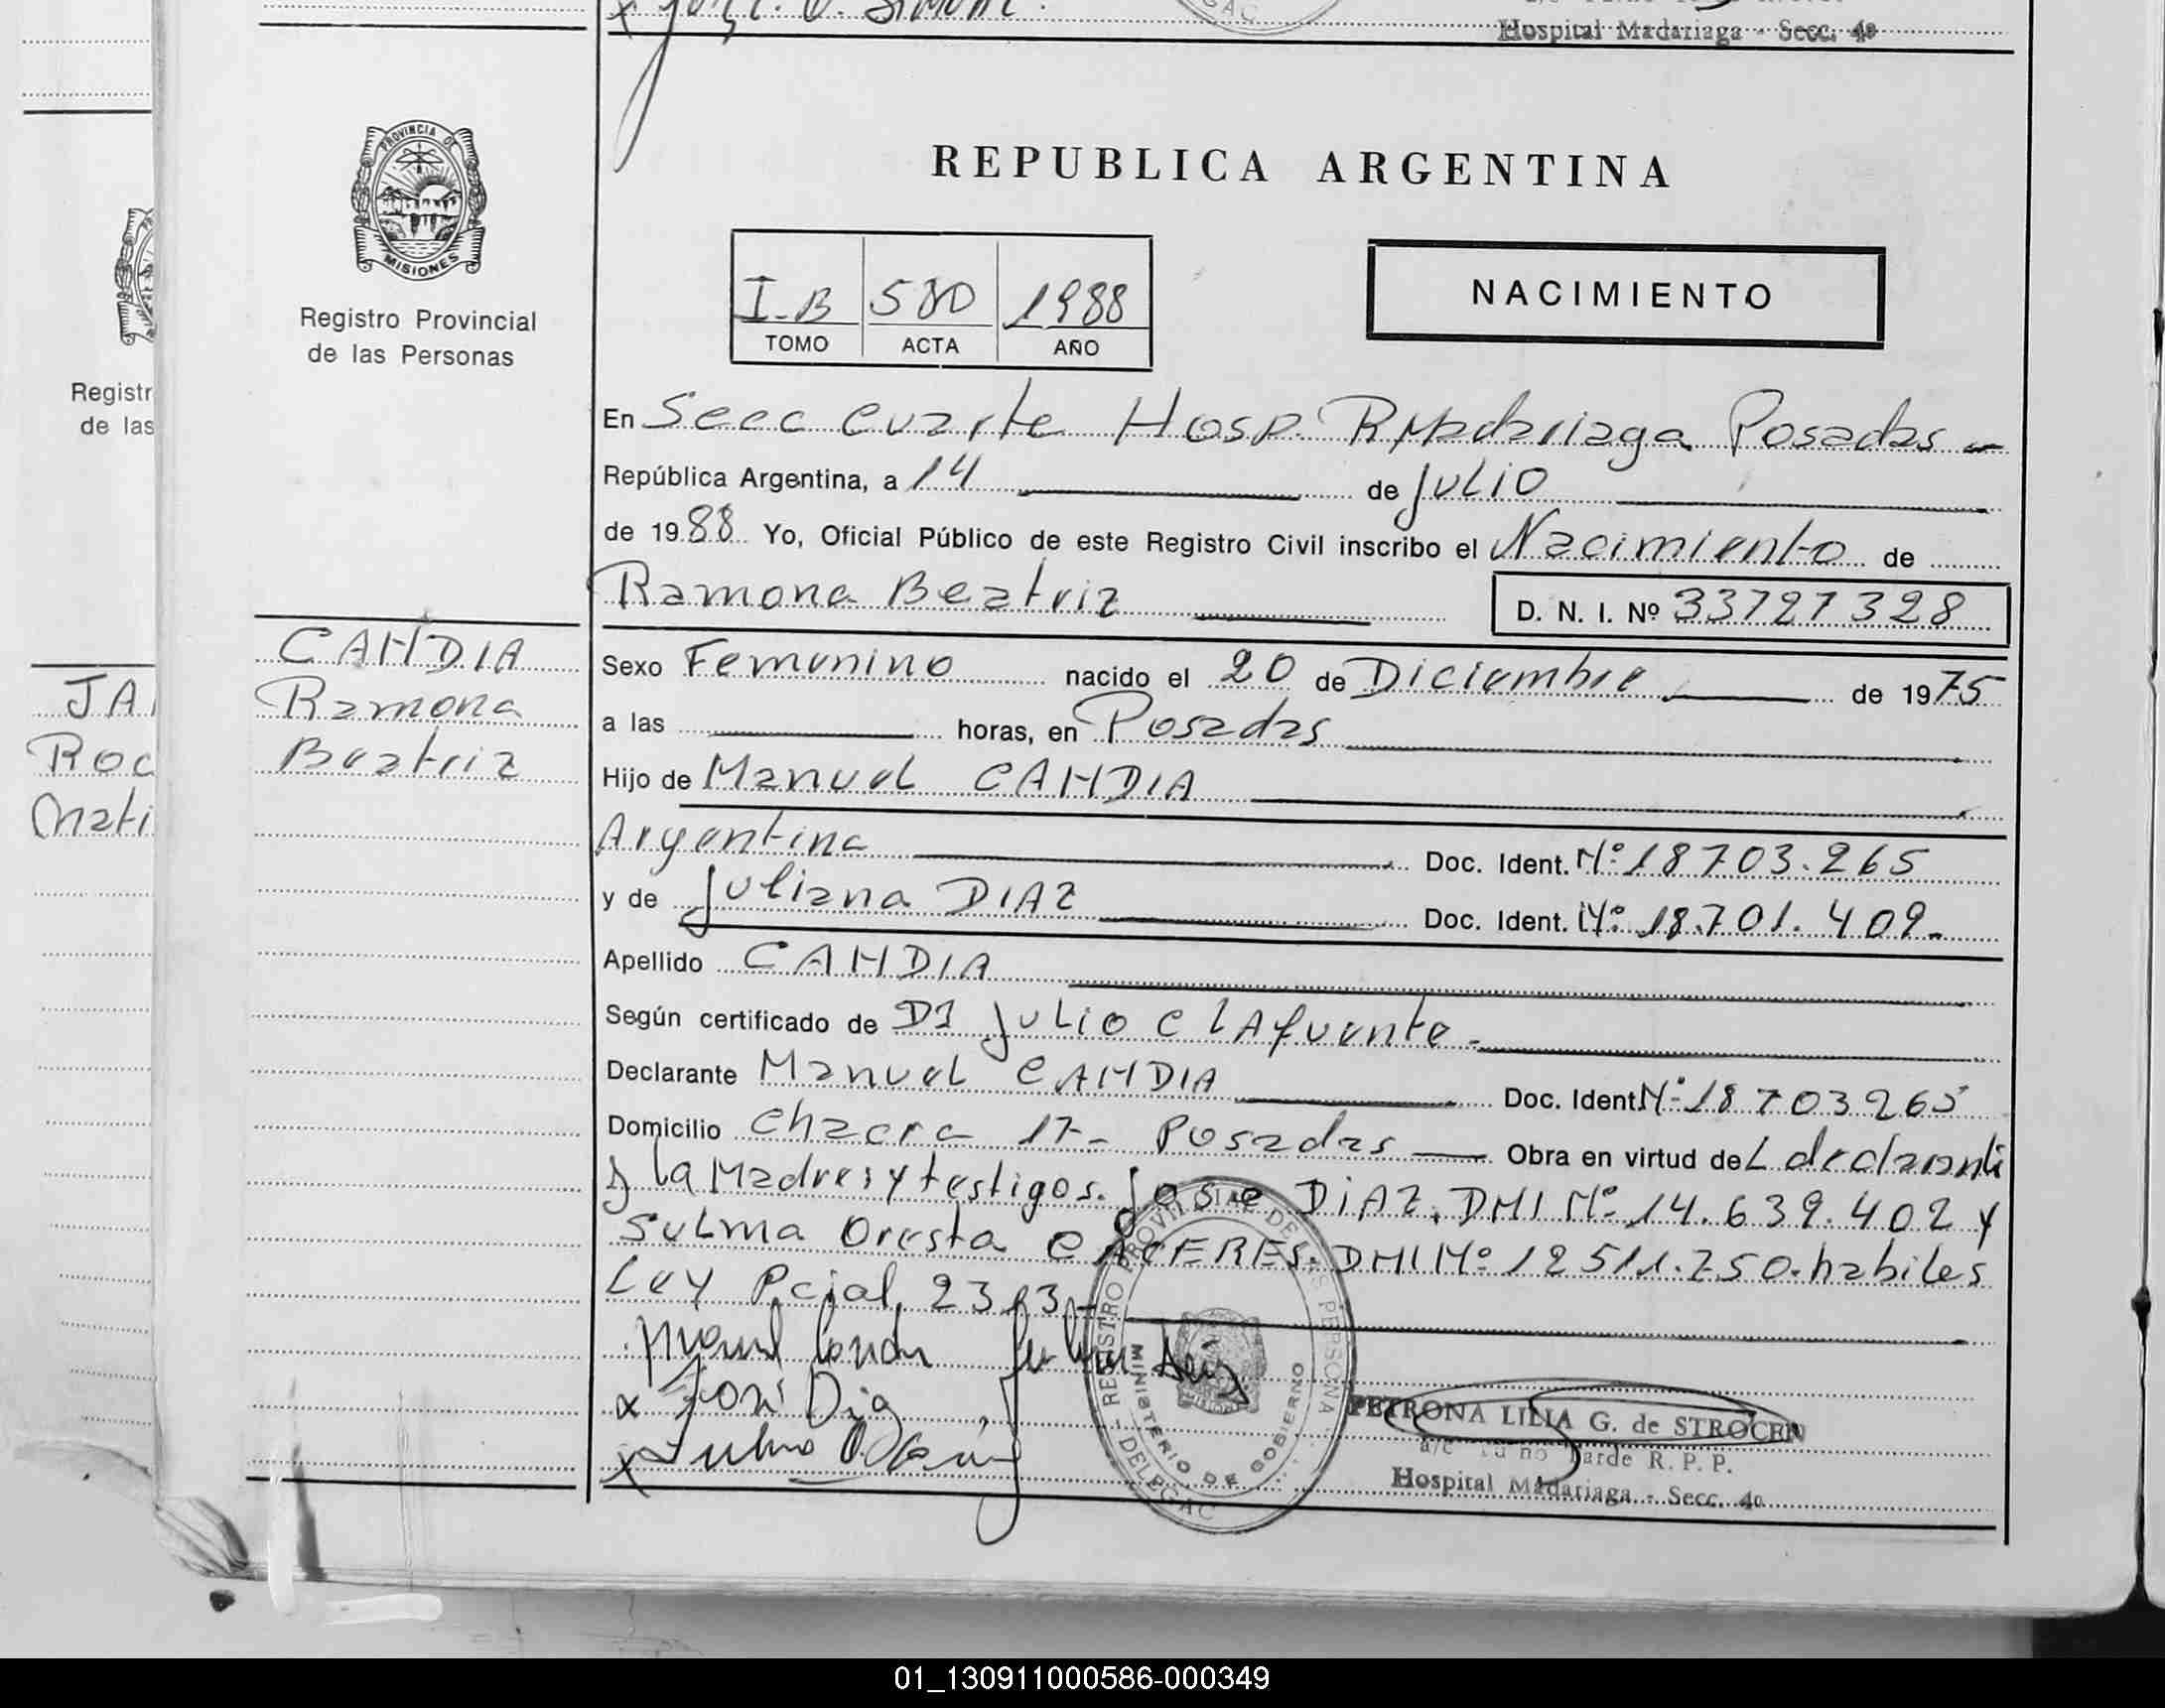 Hospital Madariaga - Secc. 4a
PROVINCIA DE
MISIONES
Registro Provincial
de las Personas
Registr
de las
REPUBLICA ARGENTINA
I-B 580 1988
TOMO ACTA AÑO
NACIMIENTO
En Secc cuarta Hosp. R Madariaga Posadas -
República Argentina, a 14 de Julio
de 1988 Yo, Oficial Público de este Registro Civil inscribo el Nacimiento de
Ramona Beatriz D. N. I. Nº 33727328
CANDIA
Ramona
Beatriz
JA
Roc
Mati
Sexo Femenino nacido el 20 de Diciembre de 1975
a las horas, en Posadas
Hijo de Manuel CANDIA
Argentina Doc. Ident. Nº 18703.265
y de Juliana DIAZ Doc. Ident. Nº 18.701.409-
Apellido CANDIA
Según certificado de DJ Julio C LAfuente -
Declarante Manuel CANDIA Doc. Ident. Nº 18703265
Domicilio Chacra 17- Posadas Obra en virtud del declarante
y la Madre; y testigos. Jose DIAZ, DNI Nº 14.639.402 y
Sulma Oresta CACERES. DNI Nº 12511.750. habiles
Ley Pcial 2313-
Manuel Candia
x José Díaz
PETRONA LILIA G. de STROCEN
a/c Turno Tarde R. P. P.
Hospital Madariaga - Secc. 4a
REGISTRO PROVINCIAL DE LAS PERSONAS
MINISTERIO DE GOBIERNO
DELEGAC
01_130911000586-000349